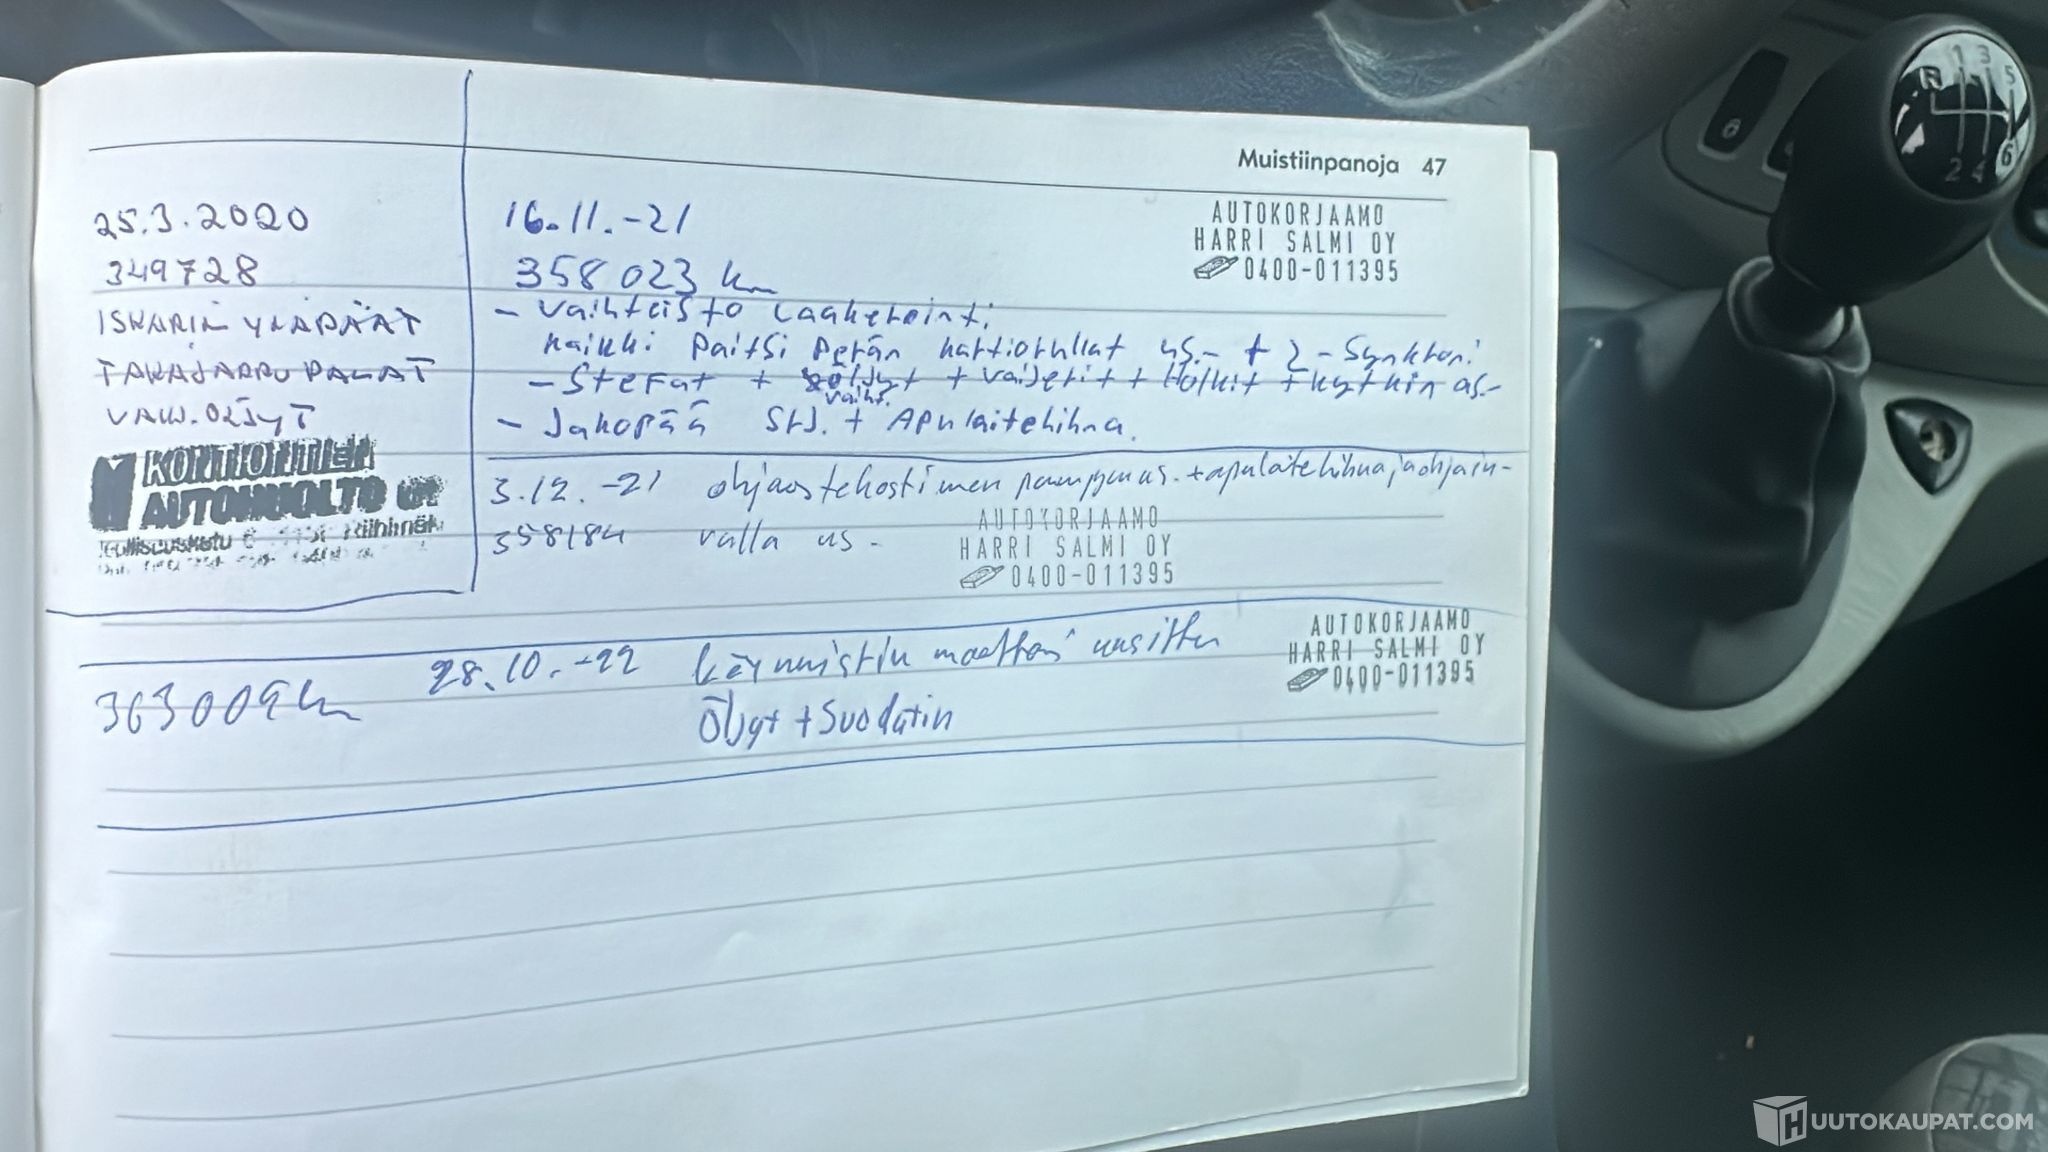 Muistiinpanoja 47
25.3.2020
349728
ISKARIN YLÄPÄÄT
TAKAJARRUPALAT
VAIH.ÖLJYT
KONTIONTIEN
AUTOHUOLTO OY
Teollisuuskatu 6 Riihimäki
16.11.-21
358 023 km
AUTOKORJAAMO
HARRI SALMI OY
0400-011395
- Vaihteisto Laakerointi
kaikki paitsi Perän kartiorullat us.- + 2-Synkroni
- Stefat + öljyt + vaijerit + Holkit + kytkin as-
vaiht.
- Jakopää srj. + Apulaitehihna.
3.12.-21 ohjaustehostimen pumppu us. + apulaitehihna ja ohjain-
358184 rulla us -
AUTOKORJAAMO
HARRI SALMI OY
0400-011395
363009 km 28.10.-22 käynnistin moottori uusittu
Öljyt + Suodatin
AUTOKORJAAMO
HARRI SALMI OY
0400-011395
R 1 3 5
2 4 6
HUUTOKAUPAT.COM